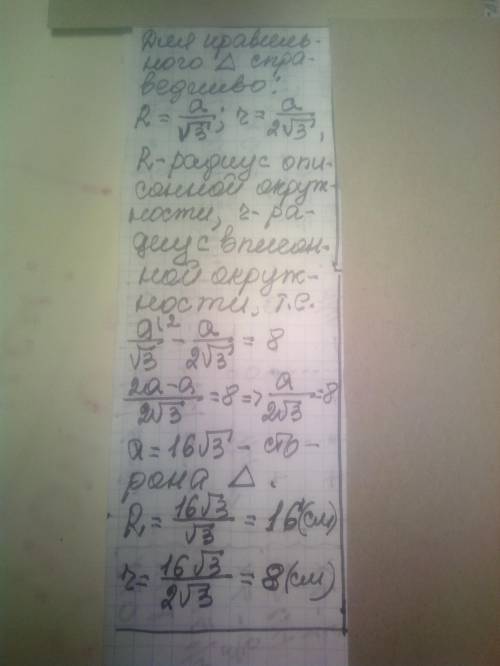 Для правиль-
ного △ спра-
ведливо:
R = a/√3; r = a/2√3,
R-радиус опи-
санной окруж-
ности, r-ра-
диус вписан-
ной окруж-
ности, т.е.
a\²/√3 - a/2√3 = 8
2a-a/2√3 = 8 => a/2√3 = 8
a = 16√3 - сто-
рона △.
R = 16√3/√3 = 16 (см)
r = 16√3/2√3 = 8 (см)